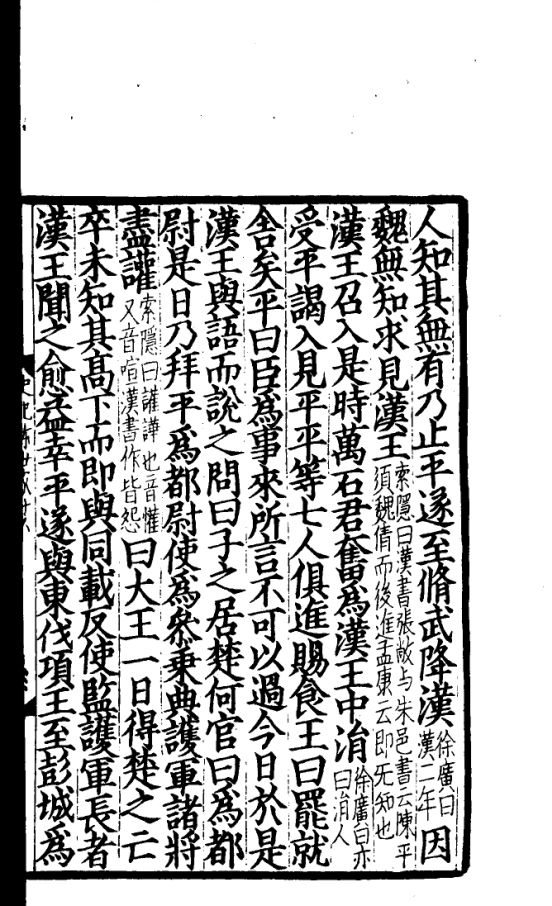 人知其無有乃止平遂至脩武降漢徐廣曰漢二年因
魏無知求見漢王索隱曰漢書張敞与朱邑書云陳平須魏倩而後進孟康云即无知也
漢王召入是時萬石君奮爲漢王中涓徐廣曰亦曰涓人
受平謁入見平平等七人俱進賜食王曰罷就
舍矣平曰臣爲事來所言不可以過今日於是
漢王與語而說之問曰子之居楚何官曰爲都
尉是日乃拜平爲都尉使爲叅乗典護軍諸將
盡讙索隱曰讙譁也音懽又音喧漢書作皆怨曰大王一日得楚之亡
卒未知其髙下而即與同載反使監護軍長者
漢王聞之愈益幸平遂與東伐項王至彭城爲